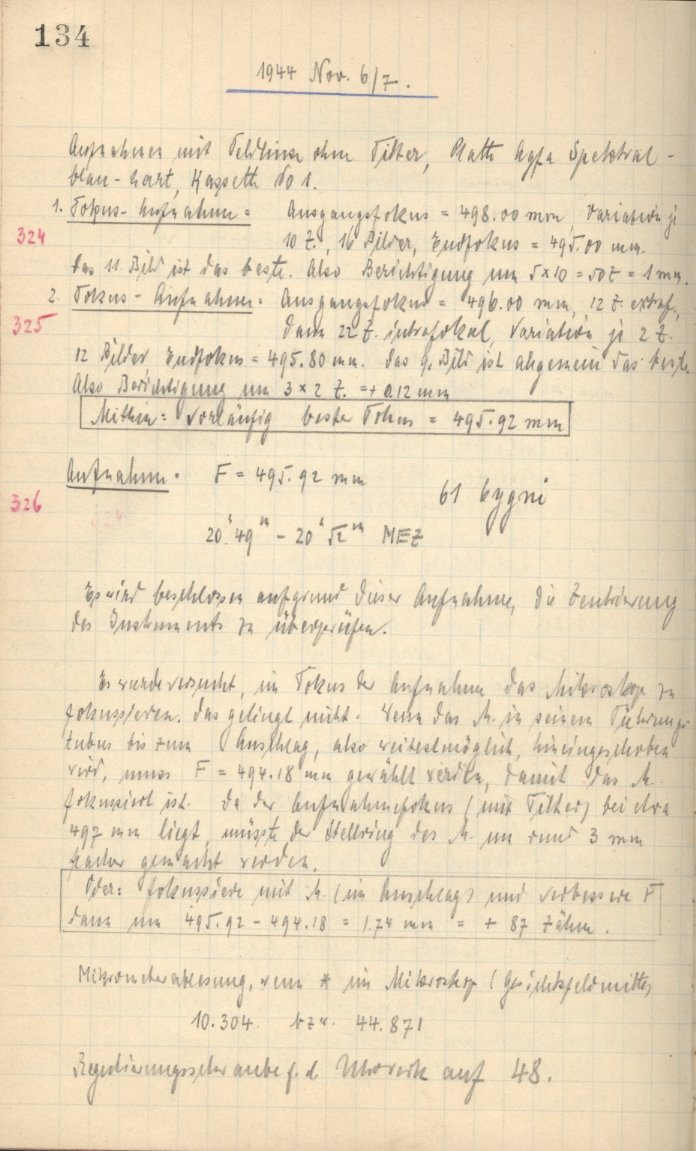 134
1944 Nov. 6/7.
Aufnahmen mit Feldlinse ohne Filter, Platte Agfa Spektral-
blau-hart, Kassette No 1.
1. Fokus-Aufnahme: Ausgangsfokus = 498.00 mm, Variation je
324
10 Z., 16 Bilder, Endfokus = 495.00 mm.
Das 11. Bild ist das beste. Also Berichtigung um 5x10 = 50 Z = 1 mm.
2. Fokus-Aufnahme: Ausgangsfokus = 496.00 mm, 12 Z. extraf.,
325
dann 22 Z. intrafokal, Variation je 2 Z.
12 Bilder Endfokus = 495.80 mm. Das 9. Bild ist allgemein das beste
Also Berichtigung um 3 x 2 Z. = + 0.12 mm
Mithin: vorläufig bester Fokus = 495.92 mm
Aufnahme. F = 495.92 mm
61 Cygni
326
20h 49m - 20h 52m MEZ
Es wird beschlossen aufgrund dieser Aufnahme, die Zentrierung
des Instruments zu überprüfen.
Es wurde versucht, im Fokus der Aufnahme das Mikroskop zu
fokussieren. Das gelingt nicht. Wenn das M. in seinem Führungs-
tubus bis zum Anschlag, also weitestmöglich, hineingeschoben
wird, muss F = 494.18 mm gewählt werden, damit das M.
fokussiert ist. Da der Aufnahmefokus (mit Filter) bei etwa
497 mm liegt, müsste der Stellring des M. um rund 3 mm
gemacht werden.
Oder: fokussiere mit M. (im Anschlag) und verbessere F
dann um 495.92 - 494.18 = 1.74 mm = + 87 Zähne.
Mikrometerablesung, wenn * im Mikroskop (Gesichtsfeldmitte)
10.304. bzw. 44.871
Regulierungsschraube f. d. Uhrwerk auf 48.